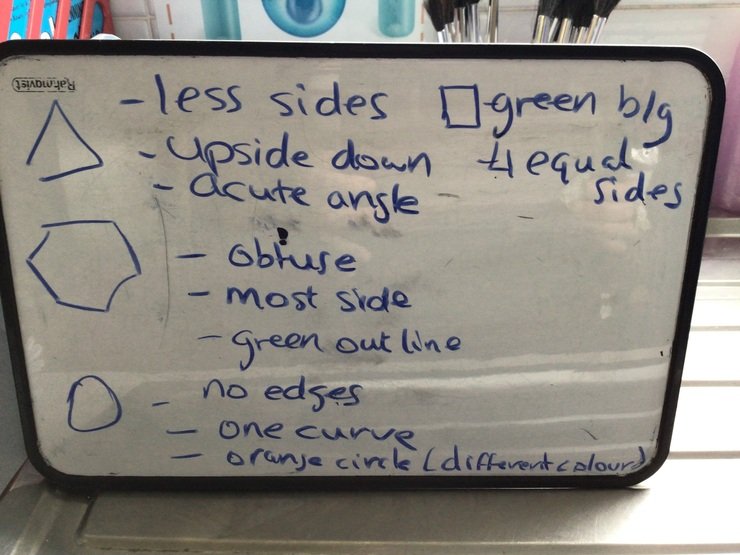 Rahmqvist
- less sides
- upside down
- acute angle
- green big
4 equal
sides
- obtuse
- most side
- green outline
- no edges
- one curve
- orange circle (different colour)